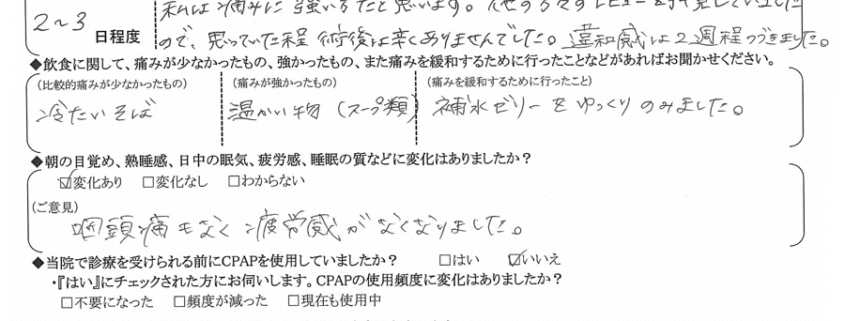 私は痛みに強い方だと思います。他の方々のレビューを拝見していました
2～3
日程度
ので、思っていた程 術後は辛くありませんでした。違和感は2週程つづきました。
◆飲食に関して、痛みが少なかったもの、強かったもの、また痛みを緩和するために行ったことなどがあればお聞かせください。
(比較的痛みが少なかったもの) (痛みが強かったもの) (痛みを緩和するために行ったこと)
冷たいそば 温かい物(スープ類) 補水ゼリーをゆっくりのみました。
◆朝の目覚め、熟睡感、日中の眠気、疲労感、睡眠の質などに変化はありましたか?
☑変化あり □変化なし □わからない
(ご意見)
咽頭痛もなく疲労感がなくなりました。
◆当院で診療を受けられる前にCPAPを使用していましたか? □はい ☑いいえ
・『はい』にチェックされた方にお伺いします。CPAPの使用頻度に変化はありましたか?
□不要になった □頻度が減った □現在も使用中